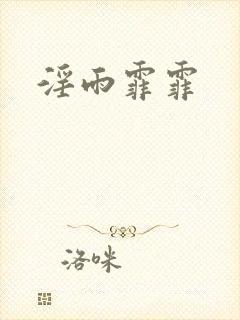 淫雨霏霏
洛咪